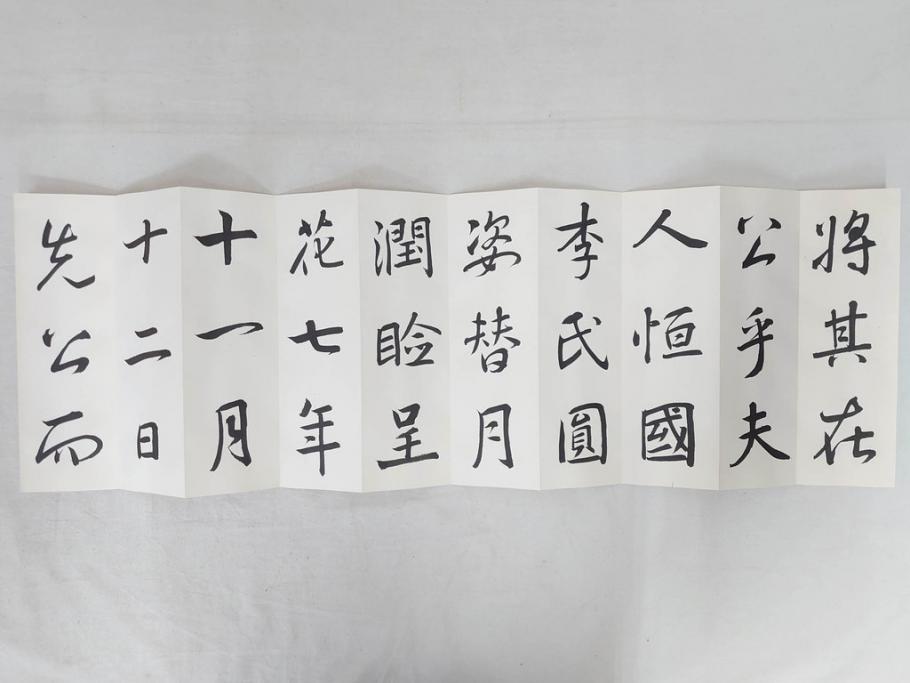 將其在
公乎夫
人恒國
李氏圓
姿替月
潤臉呈
花七年
十一月
十二日
先公而